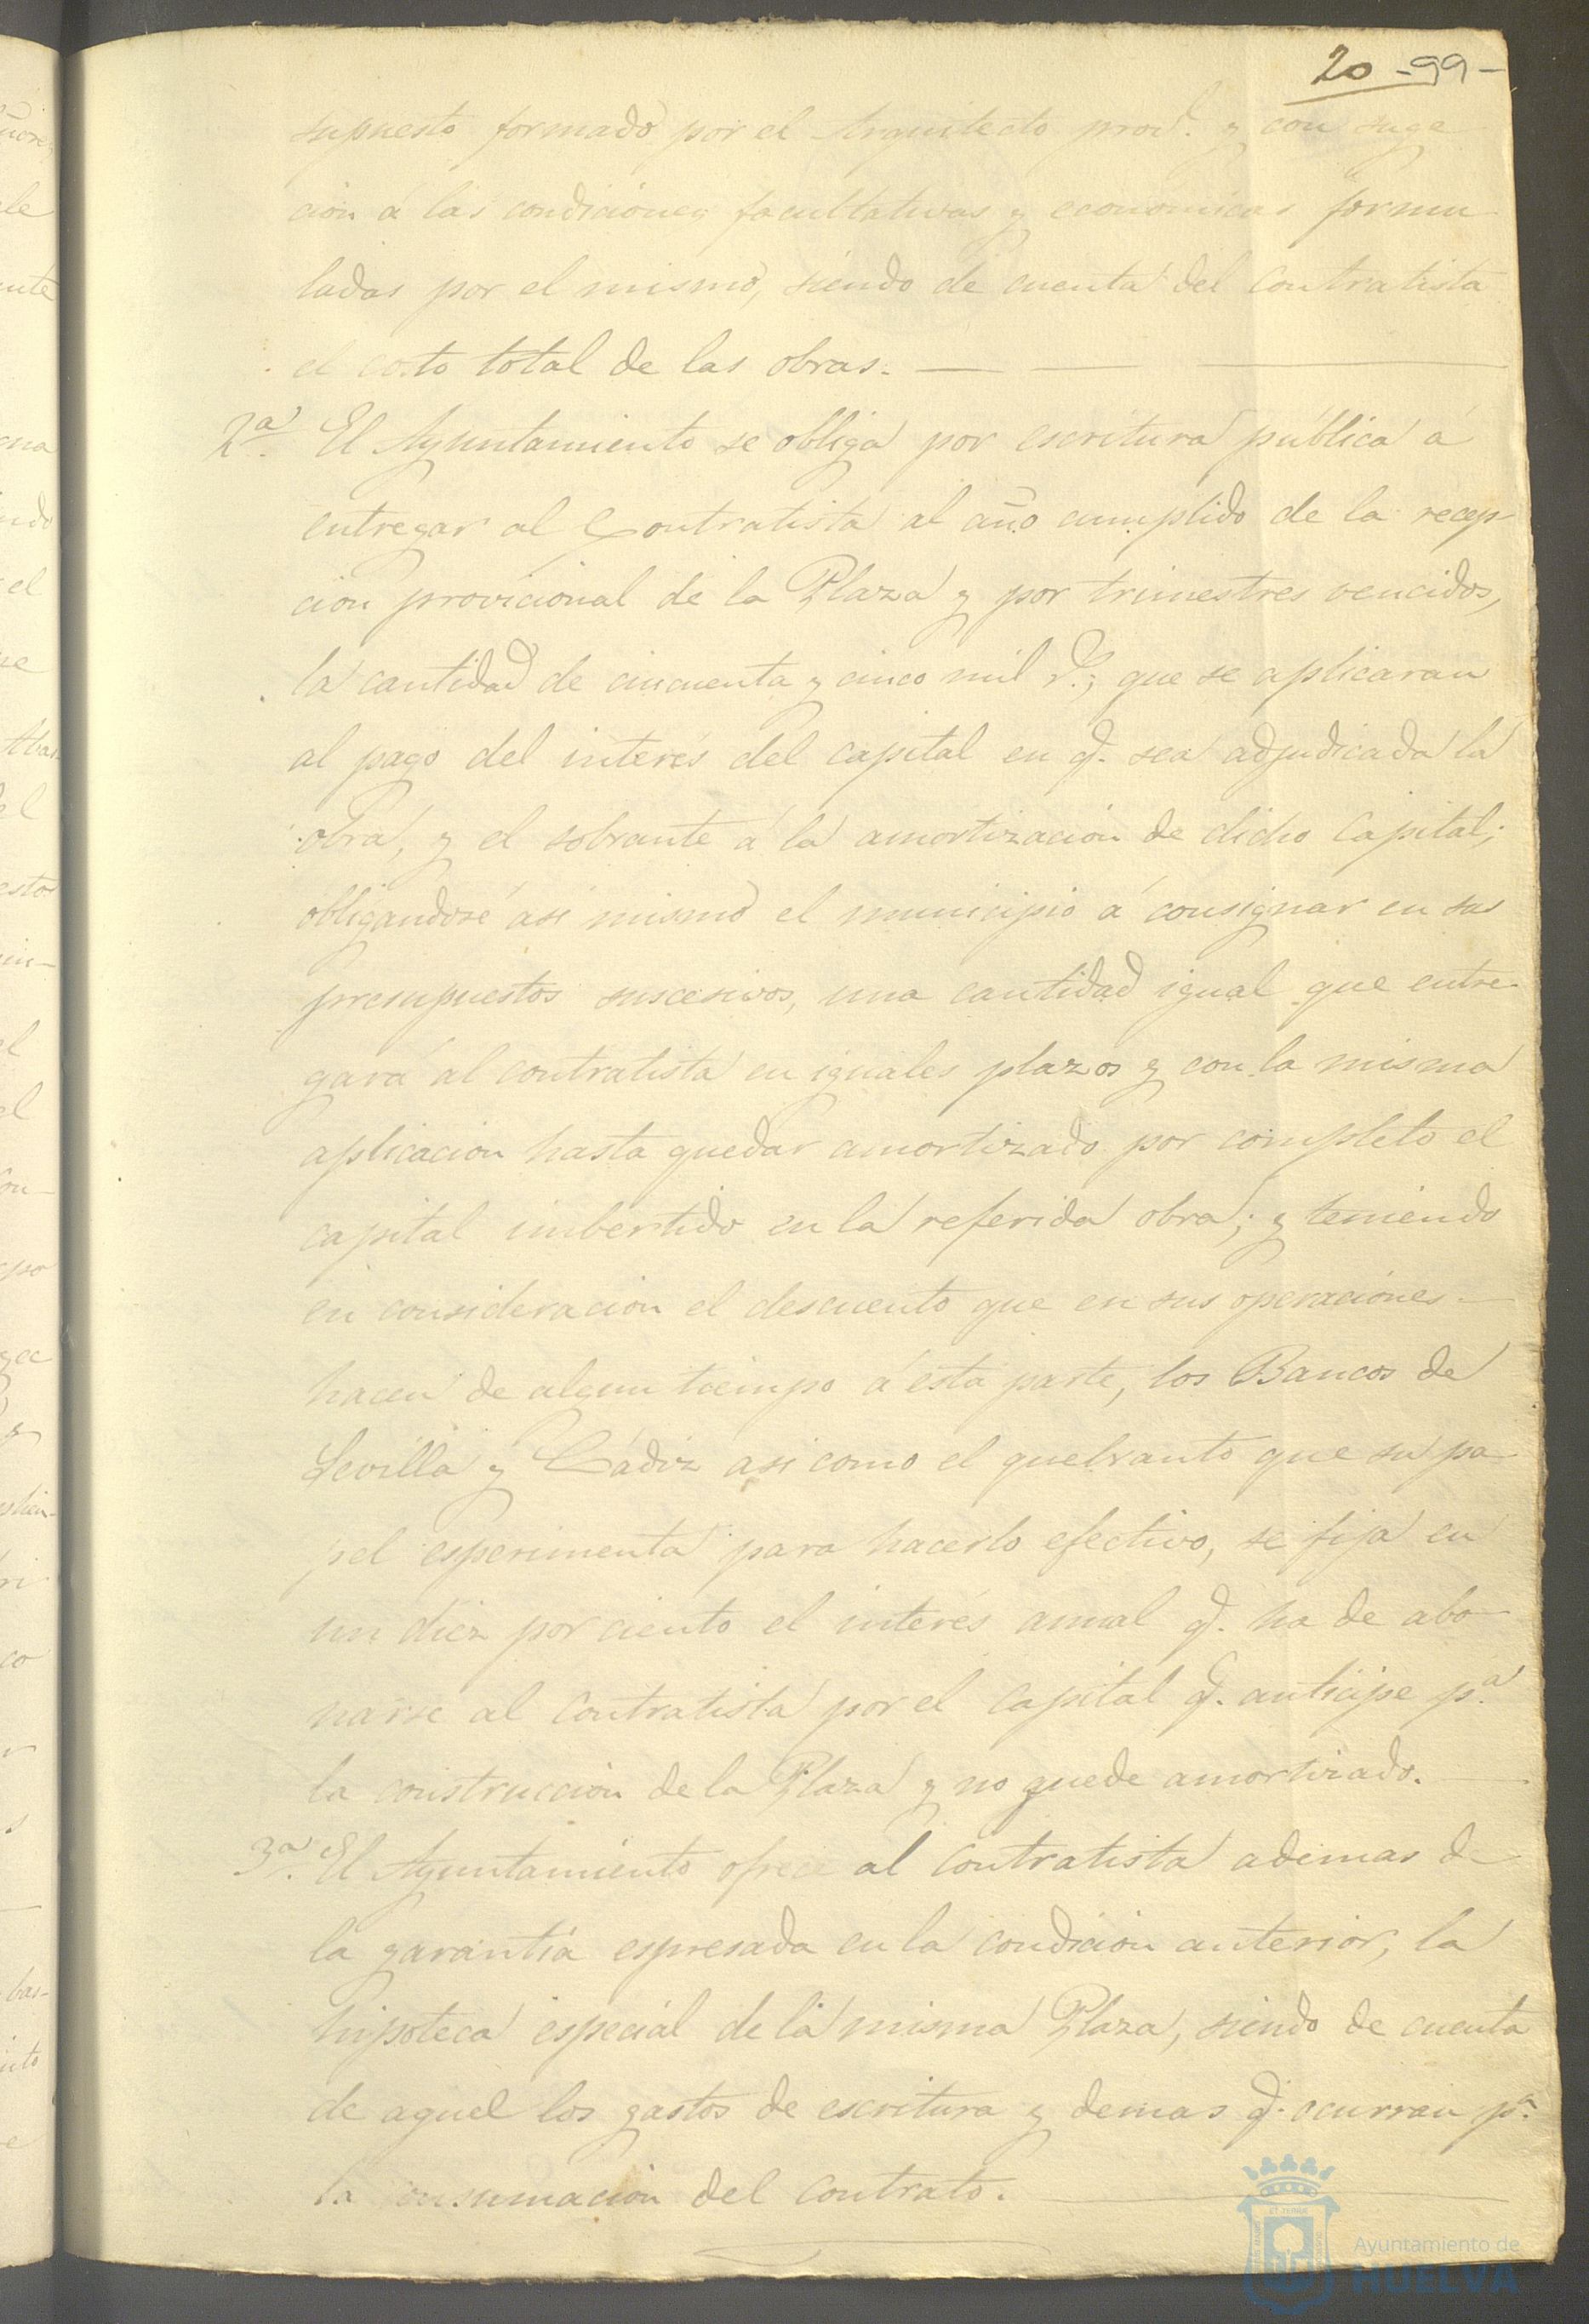 20 - 99 -
supuesto formado por el Arquitecto prov.l y con suge
cion á las condiciones facultativas y económicas formu
ladas por el mismo, siendo de cuenta del contratista
el costo total de las obras. —
2.ª El Ayuntamiento se obliga por escritura pública á
entregar al Contratista al año cumplido de la recep-
cion provicional de la Plaza y por trimestres vencidos,
la cantidad de cincuenta y cinco mil r.s; que se aplicaran
al pago del interes del capital en q. sea adjudicada la
obra, y el sobrante á la amortizacion de dicho Capital;
obligandose asi mismo el municipio á consignar en sus
presupuestos suscesivos, una cantidad igual que entre-
gará al contratista en iguales plazos y con la misma
aplicacion hasta quedar amortizado por completo el
capital imbertido en la referida obra; y teniendo
en consideracion el descuento que en sus operaciones —
hacen de algun tiempo á esta parte, los Bancos de
Sevilla y Cádiz asi como el quebranto que su pa-
pel esperimenta para hacerlo efectivo, se fija en
un diez por ciento el interés anual q. ha de abo-
narse al Contratista por el Capital q. anticipe p.ª
la construccion de la Plaza y no quede amortizado. —
3.ª El Ayuntamiento ofrece al contratista ademas de
la garantía espresada en la condicion anterior, la
hipoteca especial de la misma Plaza, siendo de cuenta
de aquel los gastos de escritura y demas q. ocurran p.ª
la consumacion del contrato. —
Ayuntamiento de
HUELVA